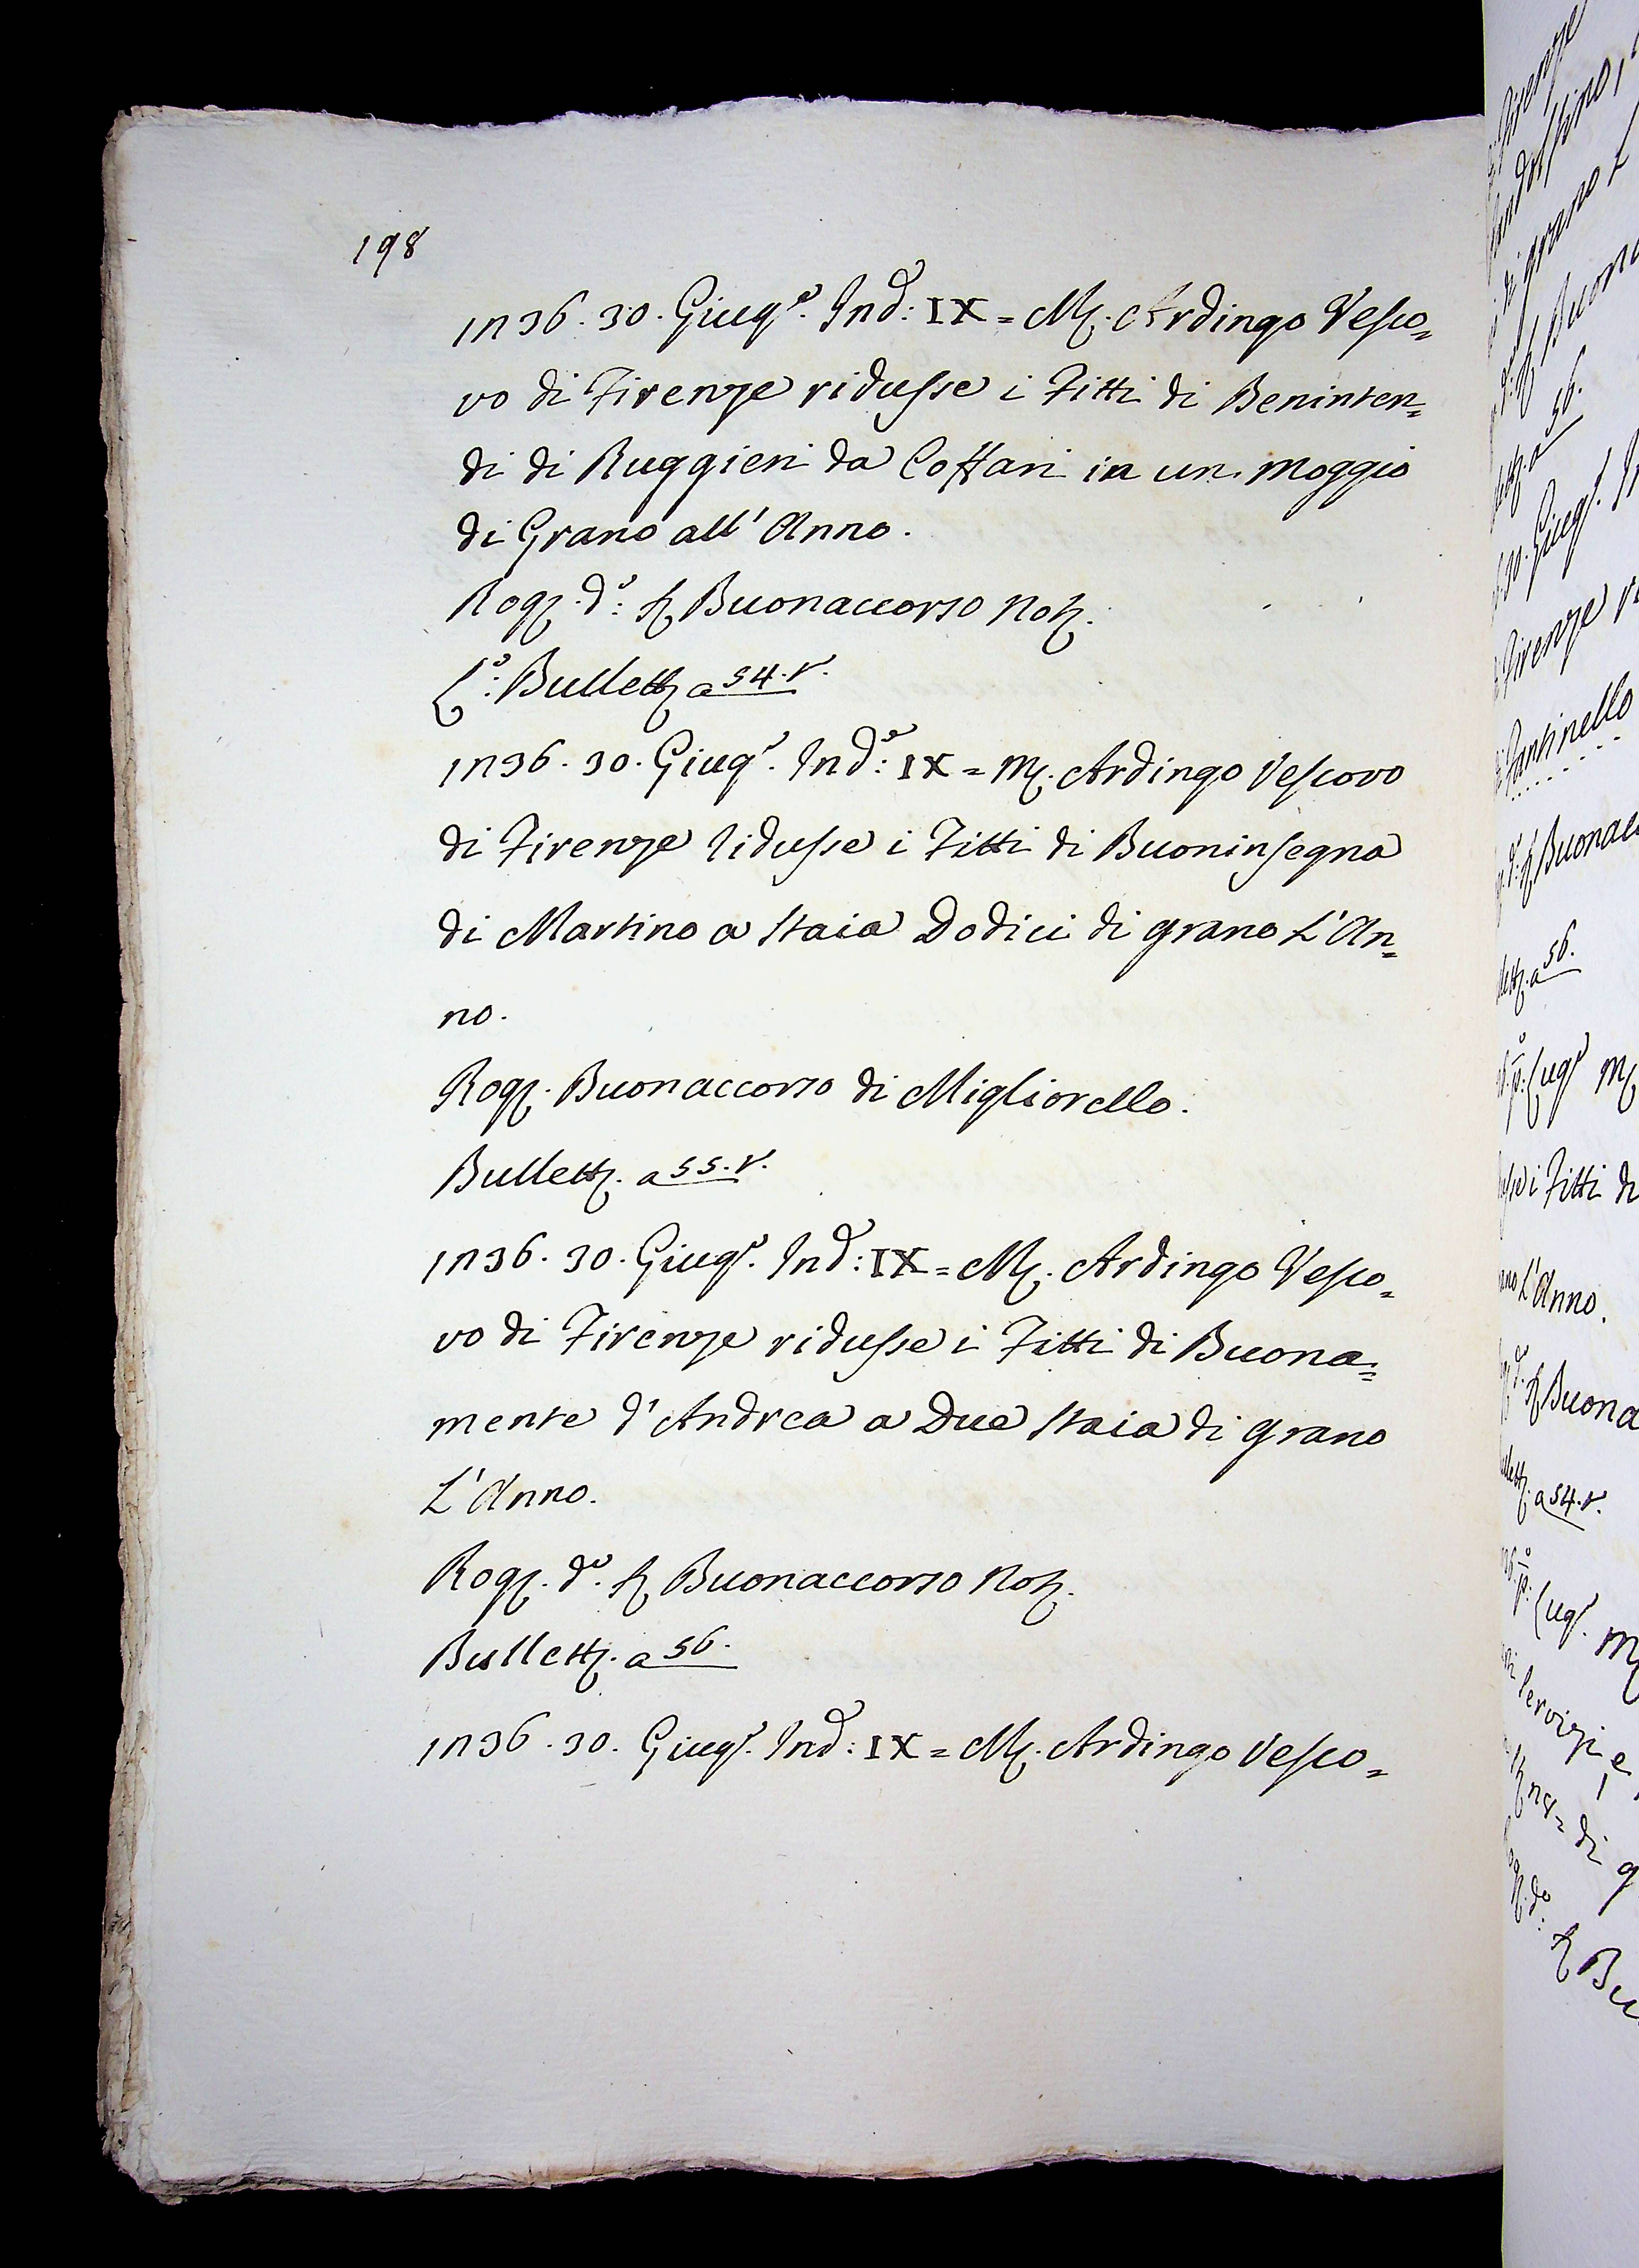 198
1236. 30. Giug.o Ind: IX = M. Ardingo Vesco=
vo di Firenze ridusse i Fitti di Beninten=
di di Ruggieri da in un moggio
di Grano all' Anno.
Rog. d.o: Buonaccorso Not.
L.o: Bullett. a 54. v.
1236. 30. Giug.o Ind.e: IX = M. Ardingo Vescovo
di Firenze ridusse i Fitti di Buoninsegna
di Martino a Staia Dodici di grano L'An=
no.
Rog. Buonaccorso di Migliorello.
Bullett. a 55. v.
1236. 30. Giug.o Ind: IX = M. Ardingo Vesco=
vo di Firenze ridusse i Fitti di Buona=
mente d'Andrea a Due Staia di grano
L'Anno.
Rog. d.o. Buonaccorso Not.
Bullett. a 56.
1236. 30. Giug.o Ind: IX = M. Ardingo Vesco=
Firenze
di grano
56.
Giug.
Firenze
a 56.
i Fitti di
L'Anno.
a 54. v.